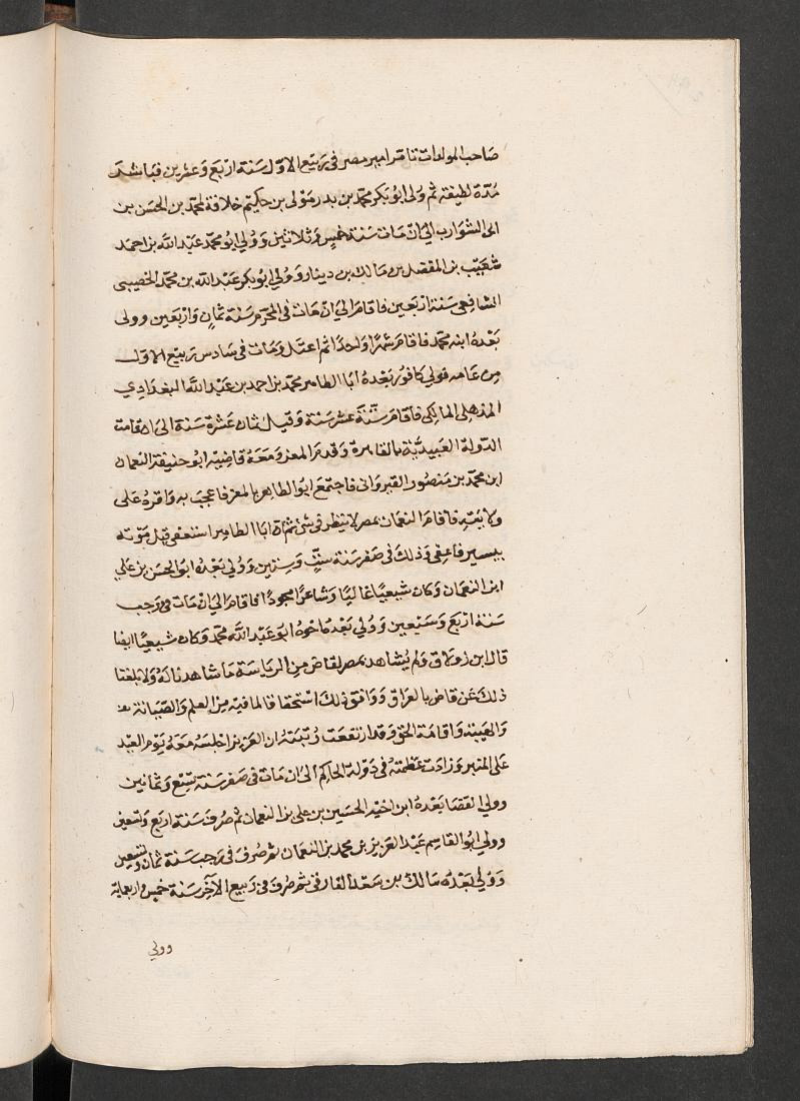 صَاحب المولدات نامر امير مصر في رَبيع الاول سَنة اربَع وَعشرين فبَاشر
مُدّة لطيفة ثم ولي ابو بَكر محمّد بن بدر مَولى بن حكيتم خلافة لمحمّد بن الحسَن بن
ابى الشوَارب الي ان مَات سَنة خمسٍ وَثلاثين وَوُلي ابو محمّد عَبد الله بن احمَد
شعَيب بن المفضل بن مَالك بن دينار وَوُلي ابو بكر عَبد الله بن محمّد الخصيبى
الشافِعى سَنة ارْبَعين فاقامَ الي ان مَات فى المحرّم سَنة ثمانٍ وَارْبَعين وولى
بَعْدهُ ابنه محمّد فاقامَ شهرًا وَاحدًا ثم اعتَل وَمَات فى سَادس رَبيع الاوّل
مِن عَامه فولي كافورُ بَعْدهُ ابَا الطاهر محمّد بن احمد بن عَبد الله البغدَادِي
المذهلى المالِكى فاقامَ ستّة عشر سَنة وَقيل ثمان عَشرة سَنة الى ان قامت
الدّولة العَبيديَّة بالقاهرة وَقدمَ المعز وَمعَهُ قاضيه ابو حنيفة النعمان
ابن محمّد بن مَنصُور القيروَانى فاجتمعَ ابو الطاهر بالمعز فاعجبَ به وَاقرهُ عَلى
ولايَتهِ فاقامَ النعمَان بمصر لا ينظر في شئ ثم ان ابَا الطاهر استعفى قبْل مَوْته
بيسير فاعفِى وَذلكَ فى صَفر سَنة ستٍّ وَستين وَوُلي بَعْدهُ ابو الحسَن بن عَلي
ابن النعمان وَكان شيعيًا غاليًا وَشاعرًا مجودًا فاقامَ الي ان مَات في رَجب
سَنة ارْبَع وَسَبْعين وَوُلي بَعْدهُ اخوهُ ابو عَبد الله محمّد وَكان شيعيًا ايضا
قال ابن زولاق وَلم يُشاهد بمصر لقاض مِن الرياسَة مَا شاهدناهُ لهُ وَلا بلغنا
ذلكَ عَن قاض بالعرَاق وَوَافق ذلكَ استحقاقا لما فيه مِن العلم وَالصّيَانة
وَالهيبة وَاقامَة الحق وَقد ارتفعَت رُتبَتهُ ان العَزيز اجلسَهُ معَهُ يَوْم العيد
عَلى المنبر وَزادت عَظمتهُ في دَوْلة الحاكم الى ان مَات فى صَفر سَنة تسْع وَثمانين
وولي القضَا بَعْدهُ ابن اخيه الحسَين بن علي بن النعمان ثم صُرفَ سَنة اربَع وَتسعين
وولي ابو القاسِم عَبد العَزيز بن محمد بن النعمَان ثم صُرفَ في رَجب سَنة ثمان وتسعين
وَوُلي بَعْدهُ مَالك بن سَعْد الفارقى ثم صُرفَ في رَبيع الآخِر سَنة خمسٍ واربعماية
وولي